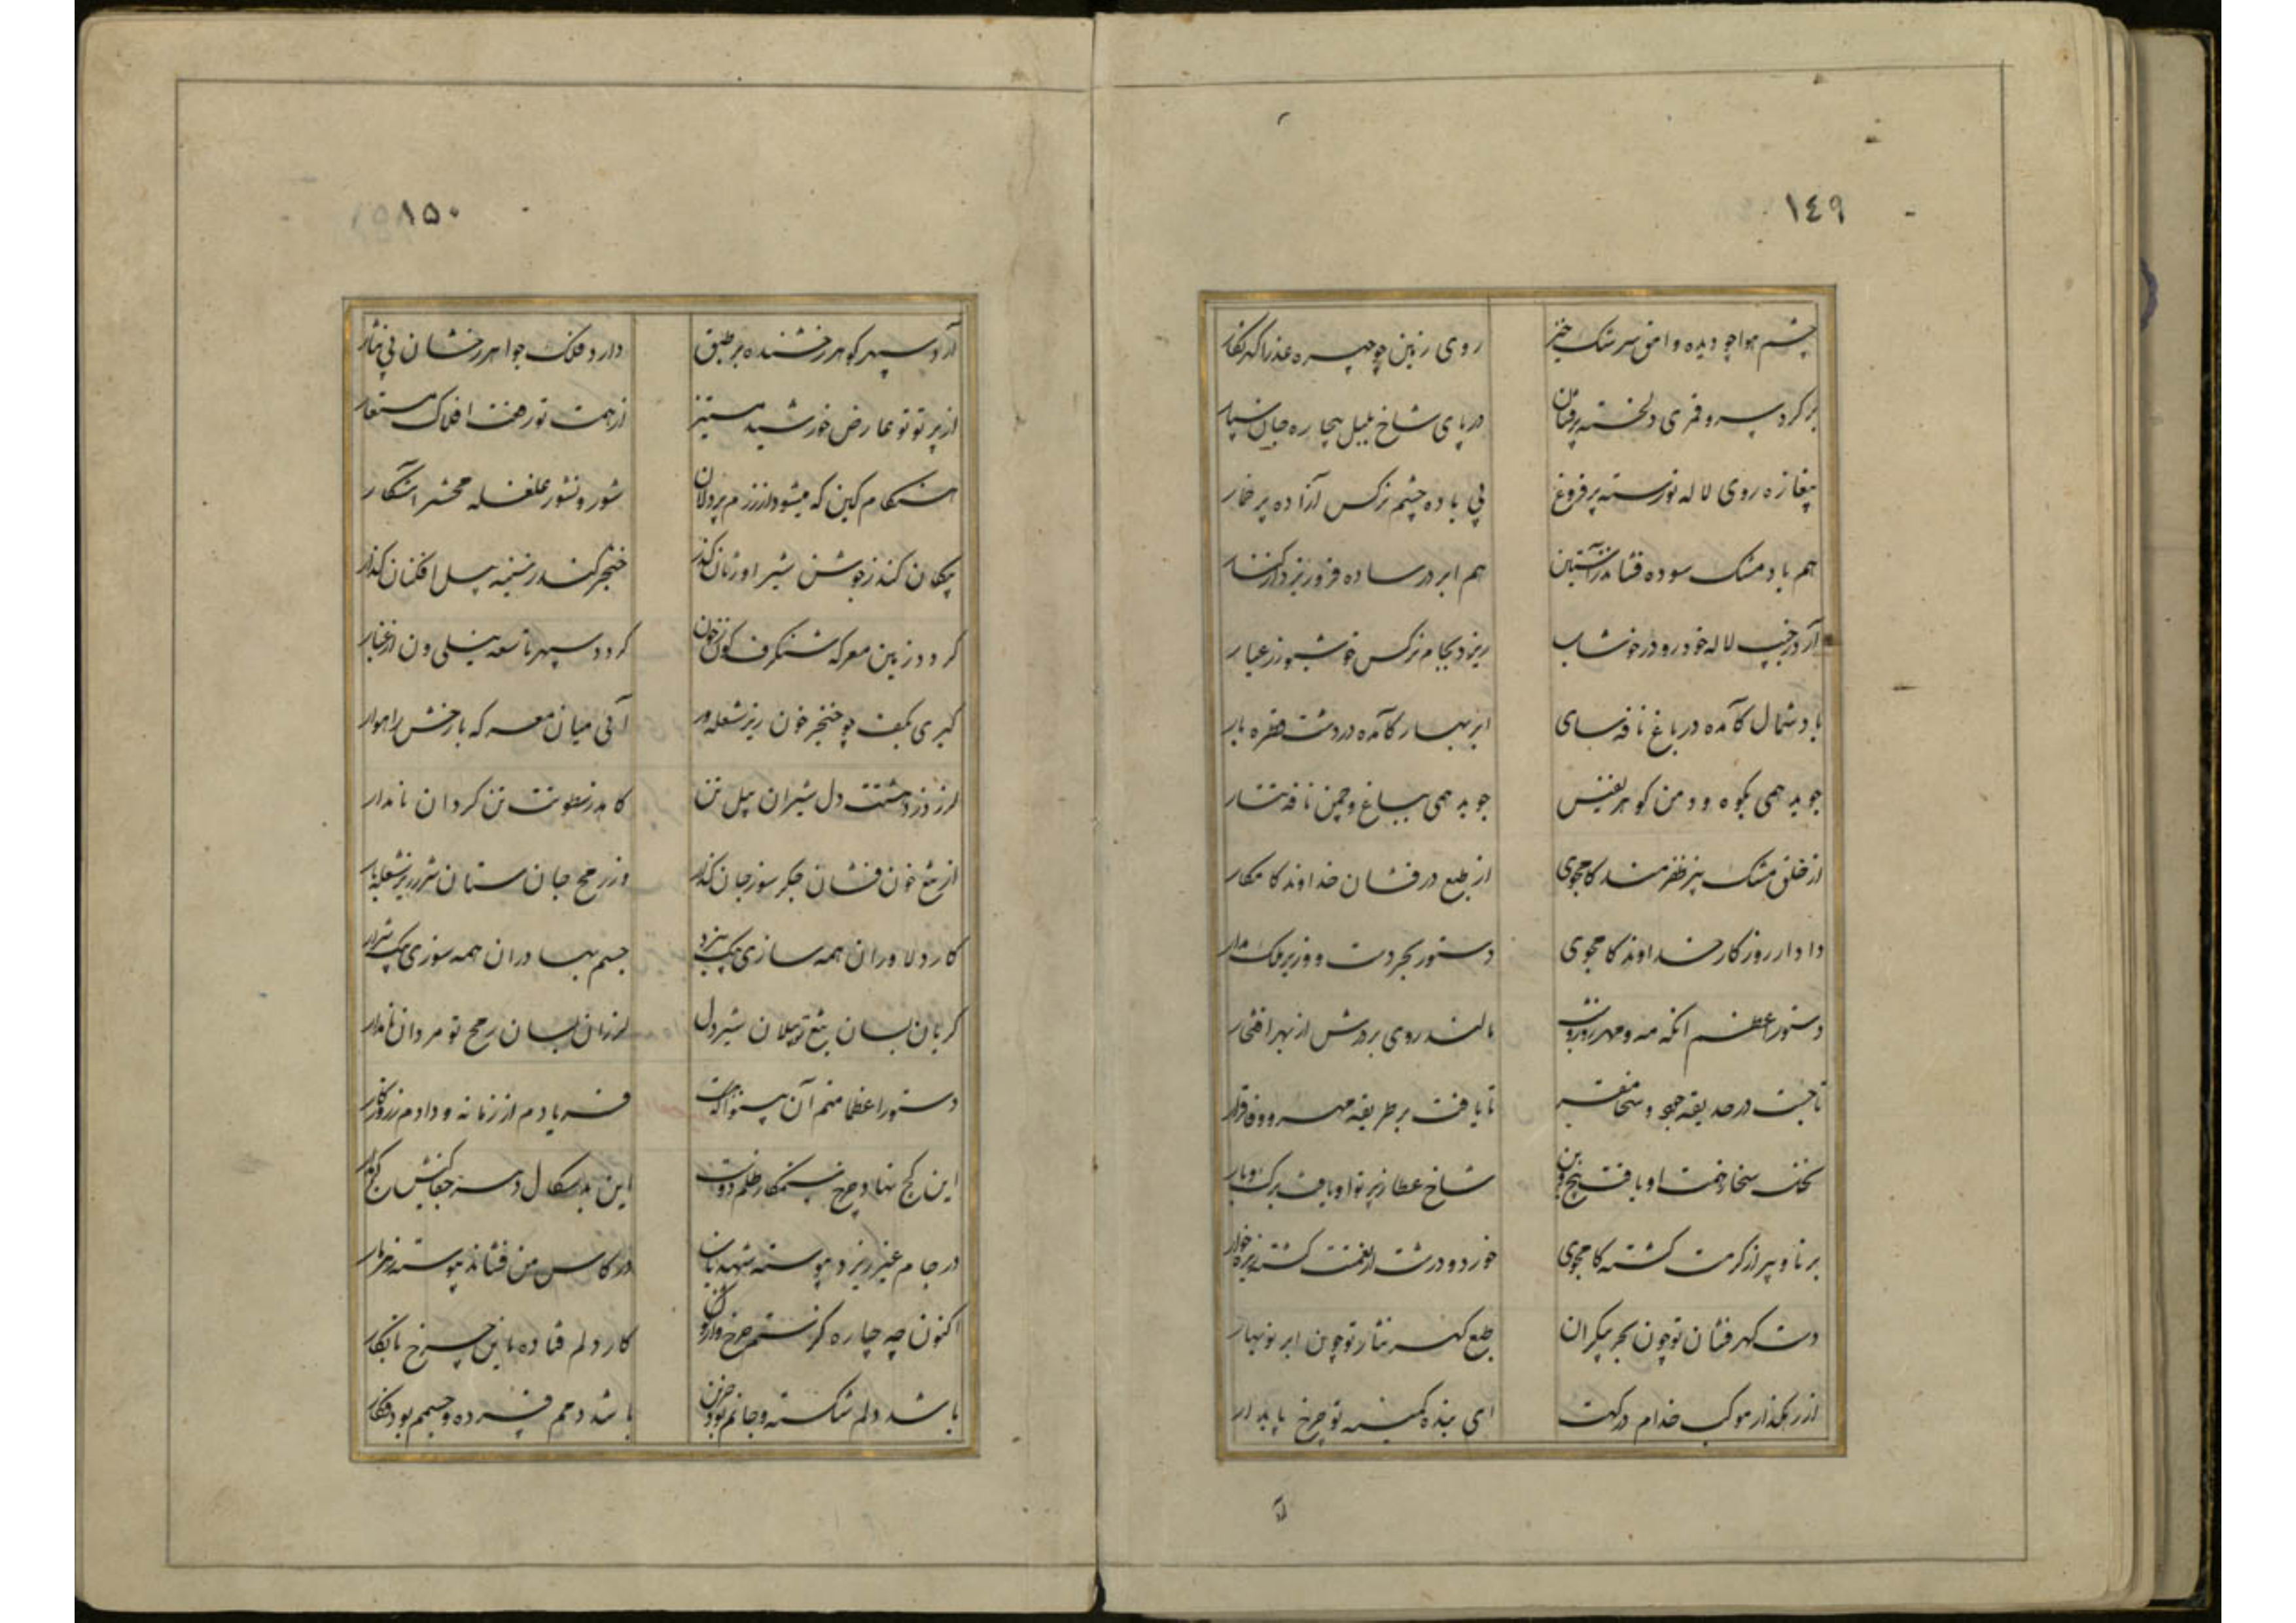 ١٤٩
چشم هوا چو دیده وامق سرشک خیز روی زمین چو چهره عذرا گهرنگار
بر گرد سرو قمری دلخسته پرفشان در پای شاخ بلبل بیچاره جان سپار
بیغازه روی لاله نورسته پرفروغ بی باده چشم نرکس آزاده پر خمار
هم باد مشک سوده فشاند ز آستین هم ابر در ساده فرو ریزد از کنار
آرد بجیب لاله خودرو در خوشاب ریزد بجام نرکس خوشبو زر عیار
باد شمال کآمده در باغ نافه سای ابر بهار کآمده در دشت قطره بار
جوید همی بکوه و دمن کوهر نفیس جوید همی بباغ و چمن نافه تتار
از خلق مشک بیز ظفرمند کامجوی از طبع درفشان خداوند کامکار
دادار روزکار خداوند کامجوی دستور بحر دست و وزیر فلک مدار
دستور اعظم آنکه مه و مهر روز و شب مالند روی بر درش از بهر افتخار
تا جست در حدیقه جود و سخا مقر تا یافت بر طریقه مهر و وفا قرار
نخل سخا ز همت او یافت بیخ و بن شاخ عطا ز پرتو او یافت برک و بار
برنا و پیر از کرمت کشته کامجوی خورد و درشت از نعمتت کشته ریزه خوار
دست کهرفشان تو چون بحر بیکران طبع کهر نثار تو چون ابر نوبهار
از رهکذار موکب خدام درکهت ای بنده کمینه تو چرخ پایدار
١٥٠
آرد سپهر کوهر رخشنده بر طبق دارد فلک جواهر رخشان پی نثار
از پرتو تو عارض خورشید مستنیر از همت تو رفعت افلاک مستعار
هنکام کین که میشود از رزم پردلان شور و نشور غلغله محشر آشکار
پیکان کند ز جوشن شیر اوژنان کذر خنجر کند ز سینه پیل افکنان کذار
کردد زمین معرکه شنکرف کون ز خون کردد سپهر تاسعه نیلی ون از غبار
کیری بکف چو خنجر خون ریز شعله ور آئی میان معرکه با رخش راهوار
لرزد ز دهشتت دل شیران پیل تن کاهد ز سطوتت تن کردان نامدار
از تیغ خون فشان جکر سوز جان کذار وز رمح جان ستان شرر ریز شعله بار
کار دلاوران همه سازی بیک نبرد جسم بهادران همه سوزی بیک شرار
کریان بسان تیغ تو یلان شیردل لرزان بسان رمح تو مردان نامدار
دستور اعظما منم آن بینوا که هست فریادم از زمانه و دادم ز روزکار
این کج نهاد چرخ ستمکار ظلم دوست این بدسکال دهر جفاکیش کج مدار
در جام غیر ریزد پیوسته شهد ناب در کاس من فشاند پیوسته زهر مار
اکنون چه چاره کز ستم چرخ واژکون کار دلم فتاده باین چرخ نابکار
باشد دلم شکسته و جانم بود حزین باشد دمم فسرده و جسمم بود فکار